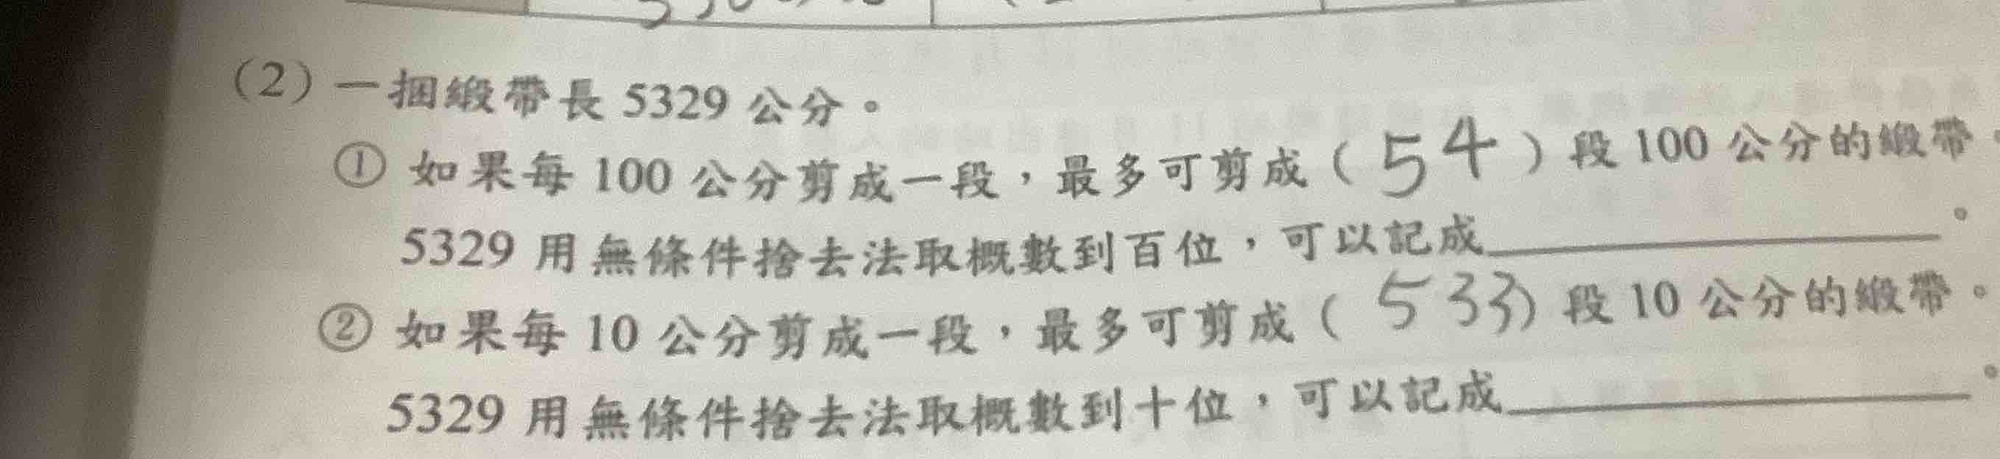 (2) 一捆緞帶長 5329 公分。
① 如果每 100 公分剪成一段，最多可剪成( 54 )段 100 公分的緞帶。
5329 用無條件捨去法取概數到百位，可以記成＿＿＿＿＿＿。
② 如果每 10 公分剪成一段，最多可剪成( 533 )段 10 公分的緞帶。
5329 用無條件捨去法取概數到十位，可以記成＿＿＿＿＿＿。